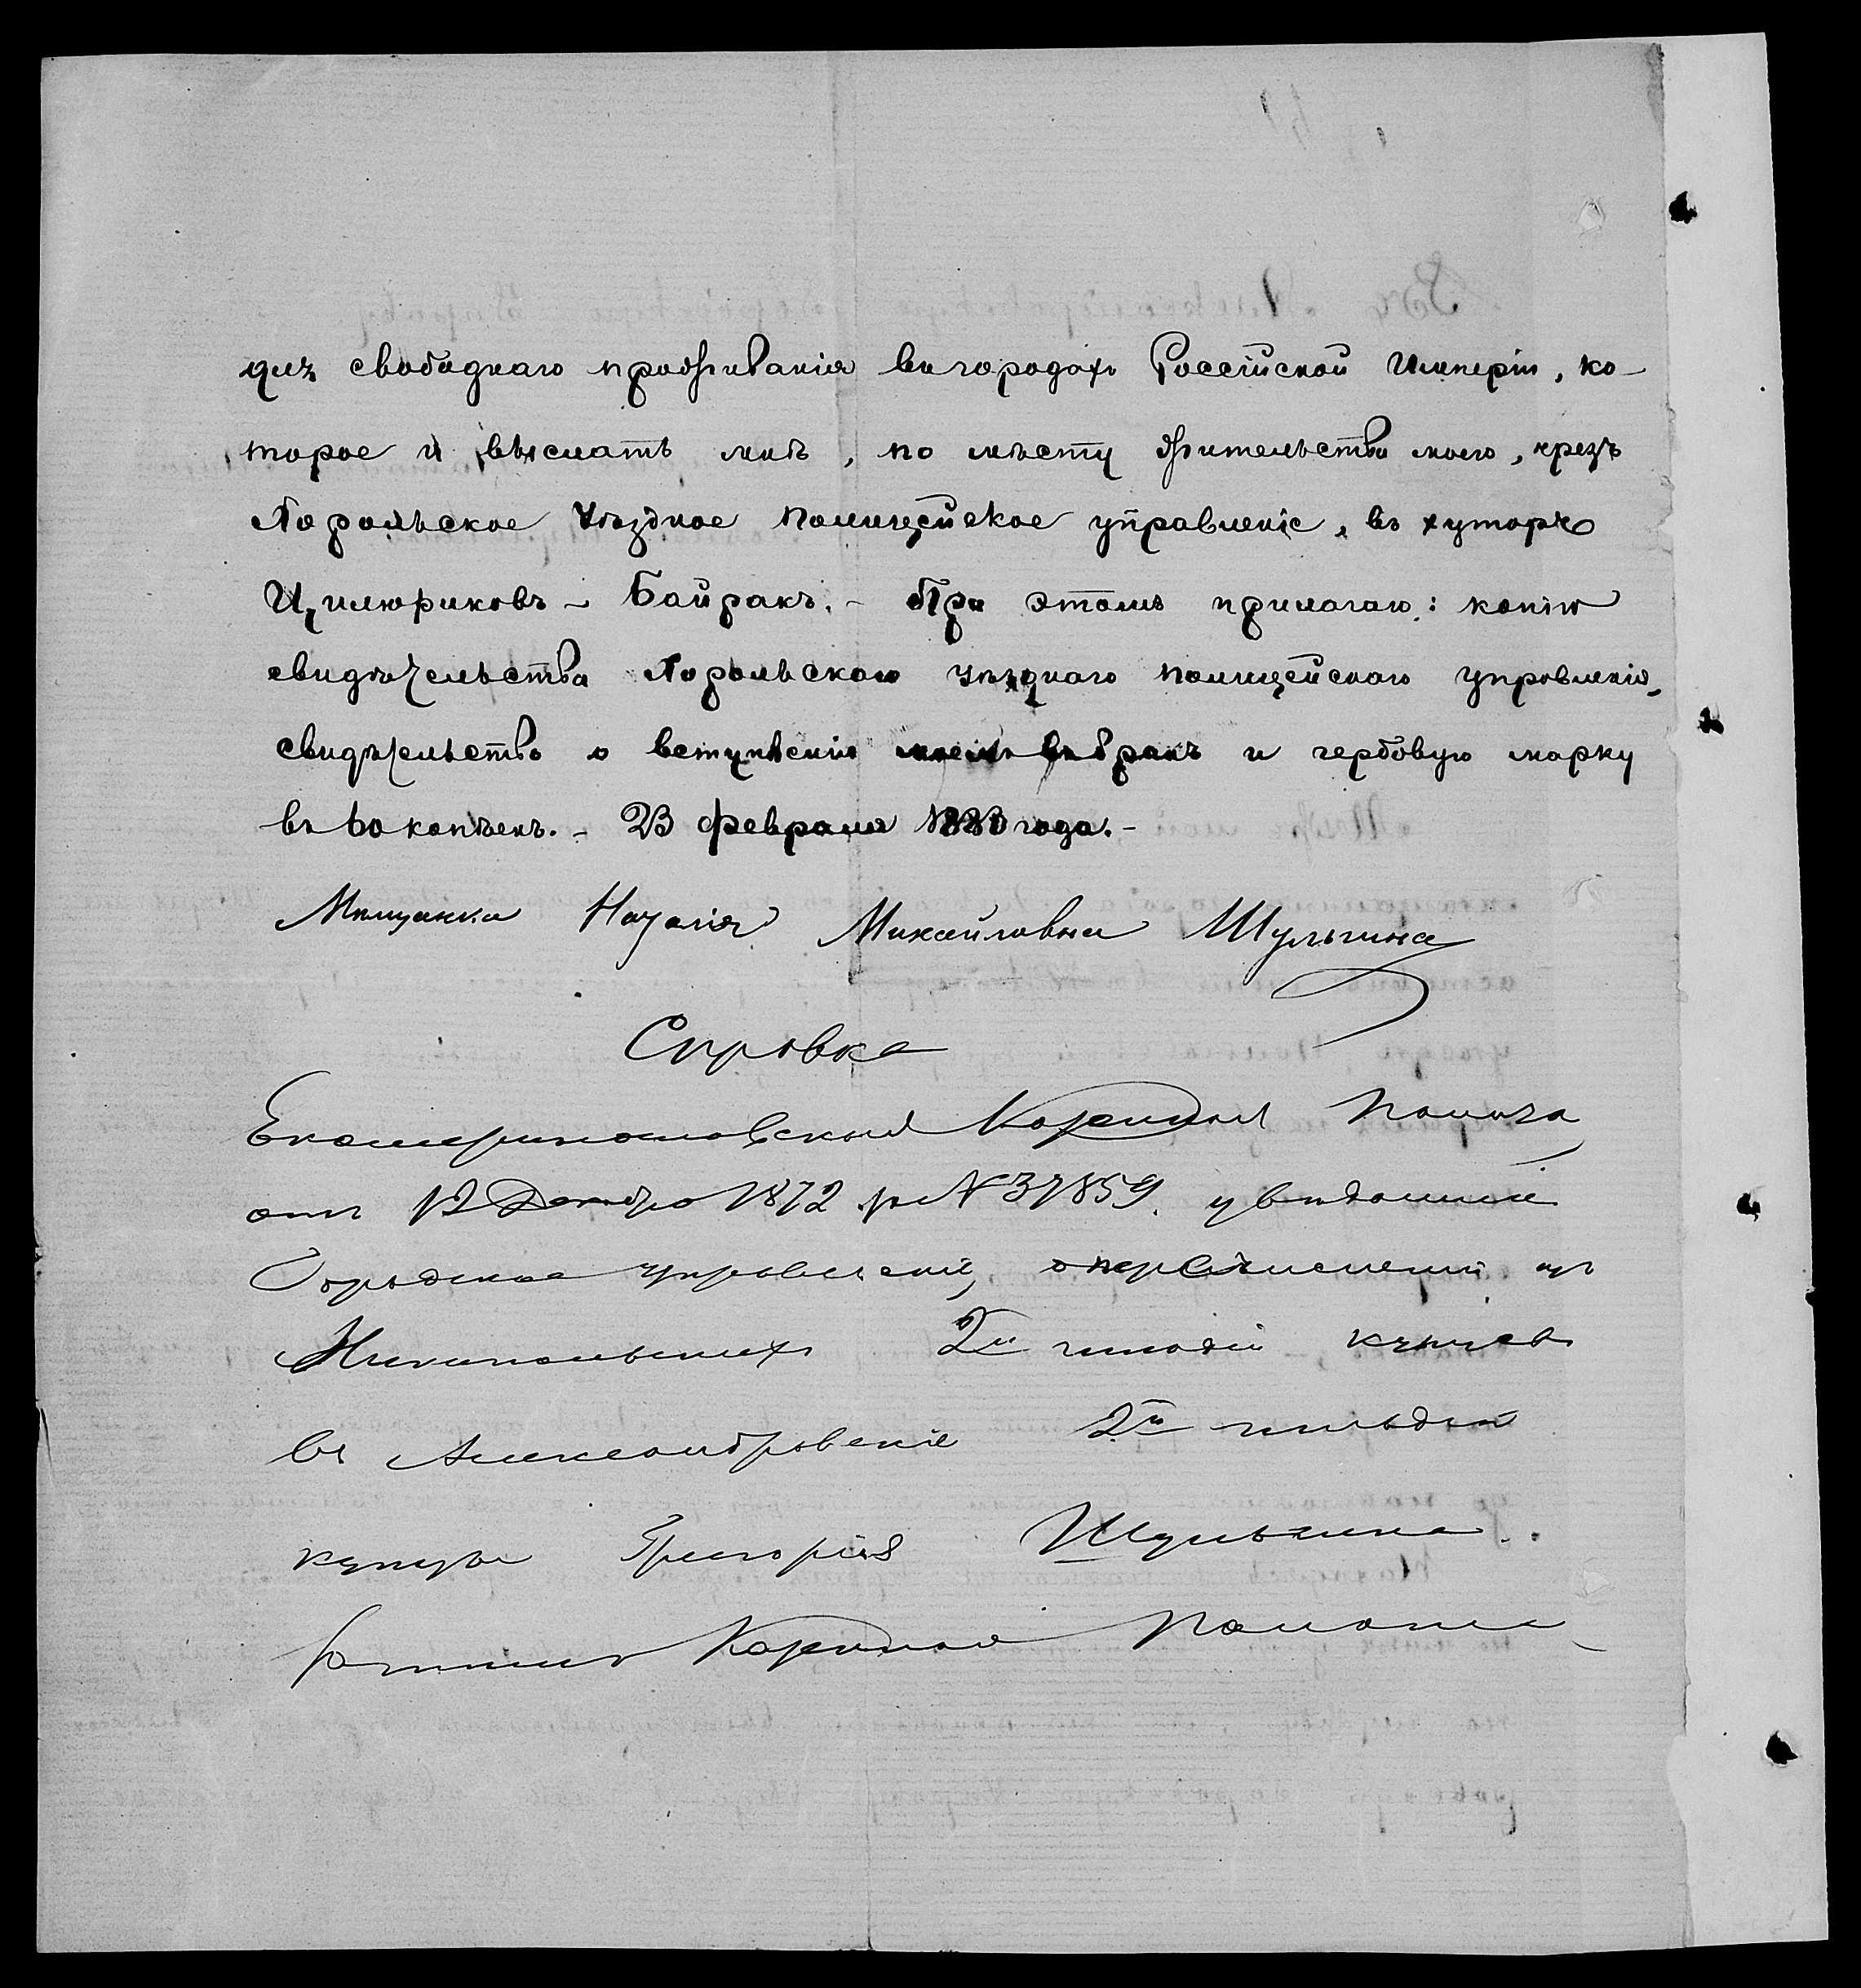 для свободнаго проживанія въ городахъ Россійской Имперіи, ко-
торое и выслать мнѣ, по мѣсту жительства моего, чрезъ
Хорольское Уѣздное полицейское управленіе, въ хуторъ
Цилюриковъ - Байракъ. - При этомъ прилагаю: копію
свидѣтельства Хорольскаго уѣзднаго полицейскаго управленія,
свидѣтельство о вступленіи моемъ въ бракъ и гербовую марку
въ 60 копѣекъ. - 23 февраля года. -
Мѣщанка Наталія Михайловна Шульгина
Справка
Екатеринославская Казенная Палата
отъ 12 Декабря 1872 за № 37859. увѣдомила
Городское управленіе, о перечисленіи изъ
Никопольскихъ 2й гильдіи купцовъ
въ Александровскіе 2й гильдіи
купцы Григорія Шульгина.
Казенная Палата